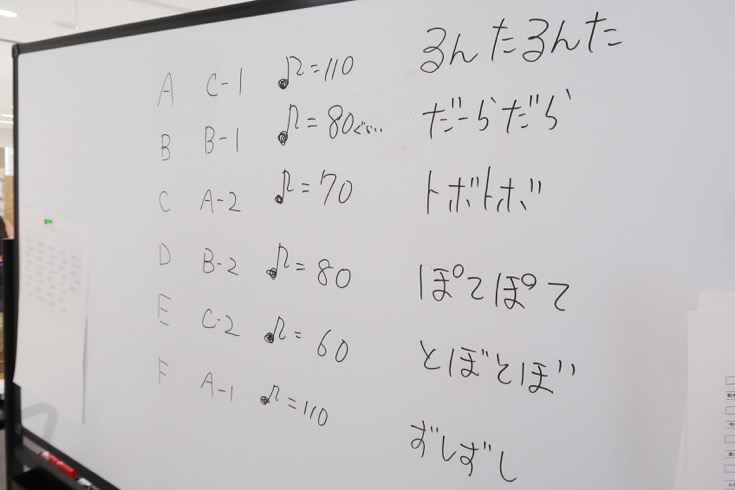 A C-1 ♪=110 るんたるんた
B B-1 ♪=80ぐらい だーらだら
C A-2 ♪=70 トボトボ
D B-2 ♪=80 ぽてぽて
E C-2 ♪=60 とぼとぼ
F A-1 ♪=110 ずしずし